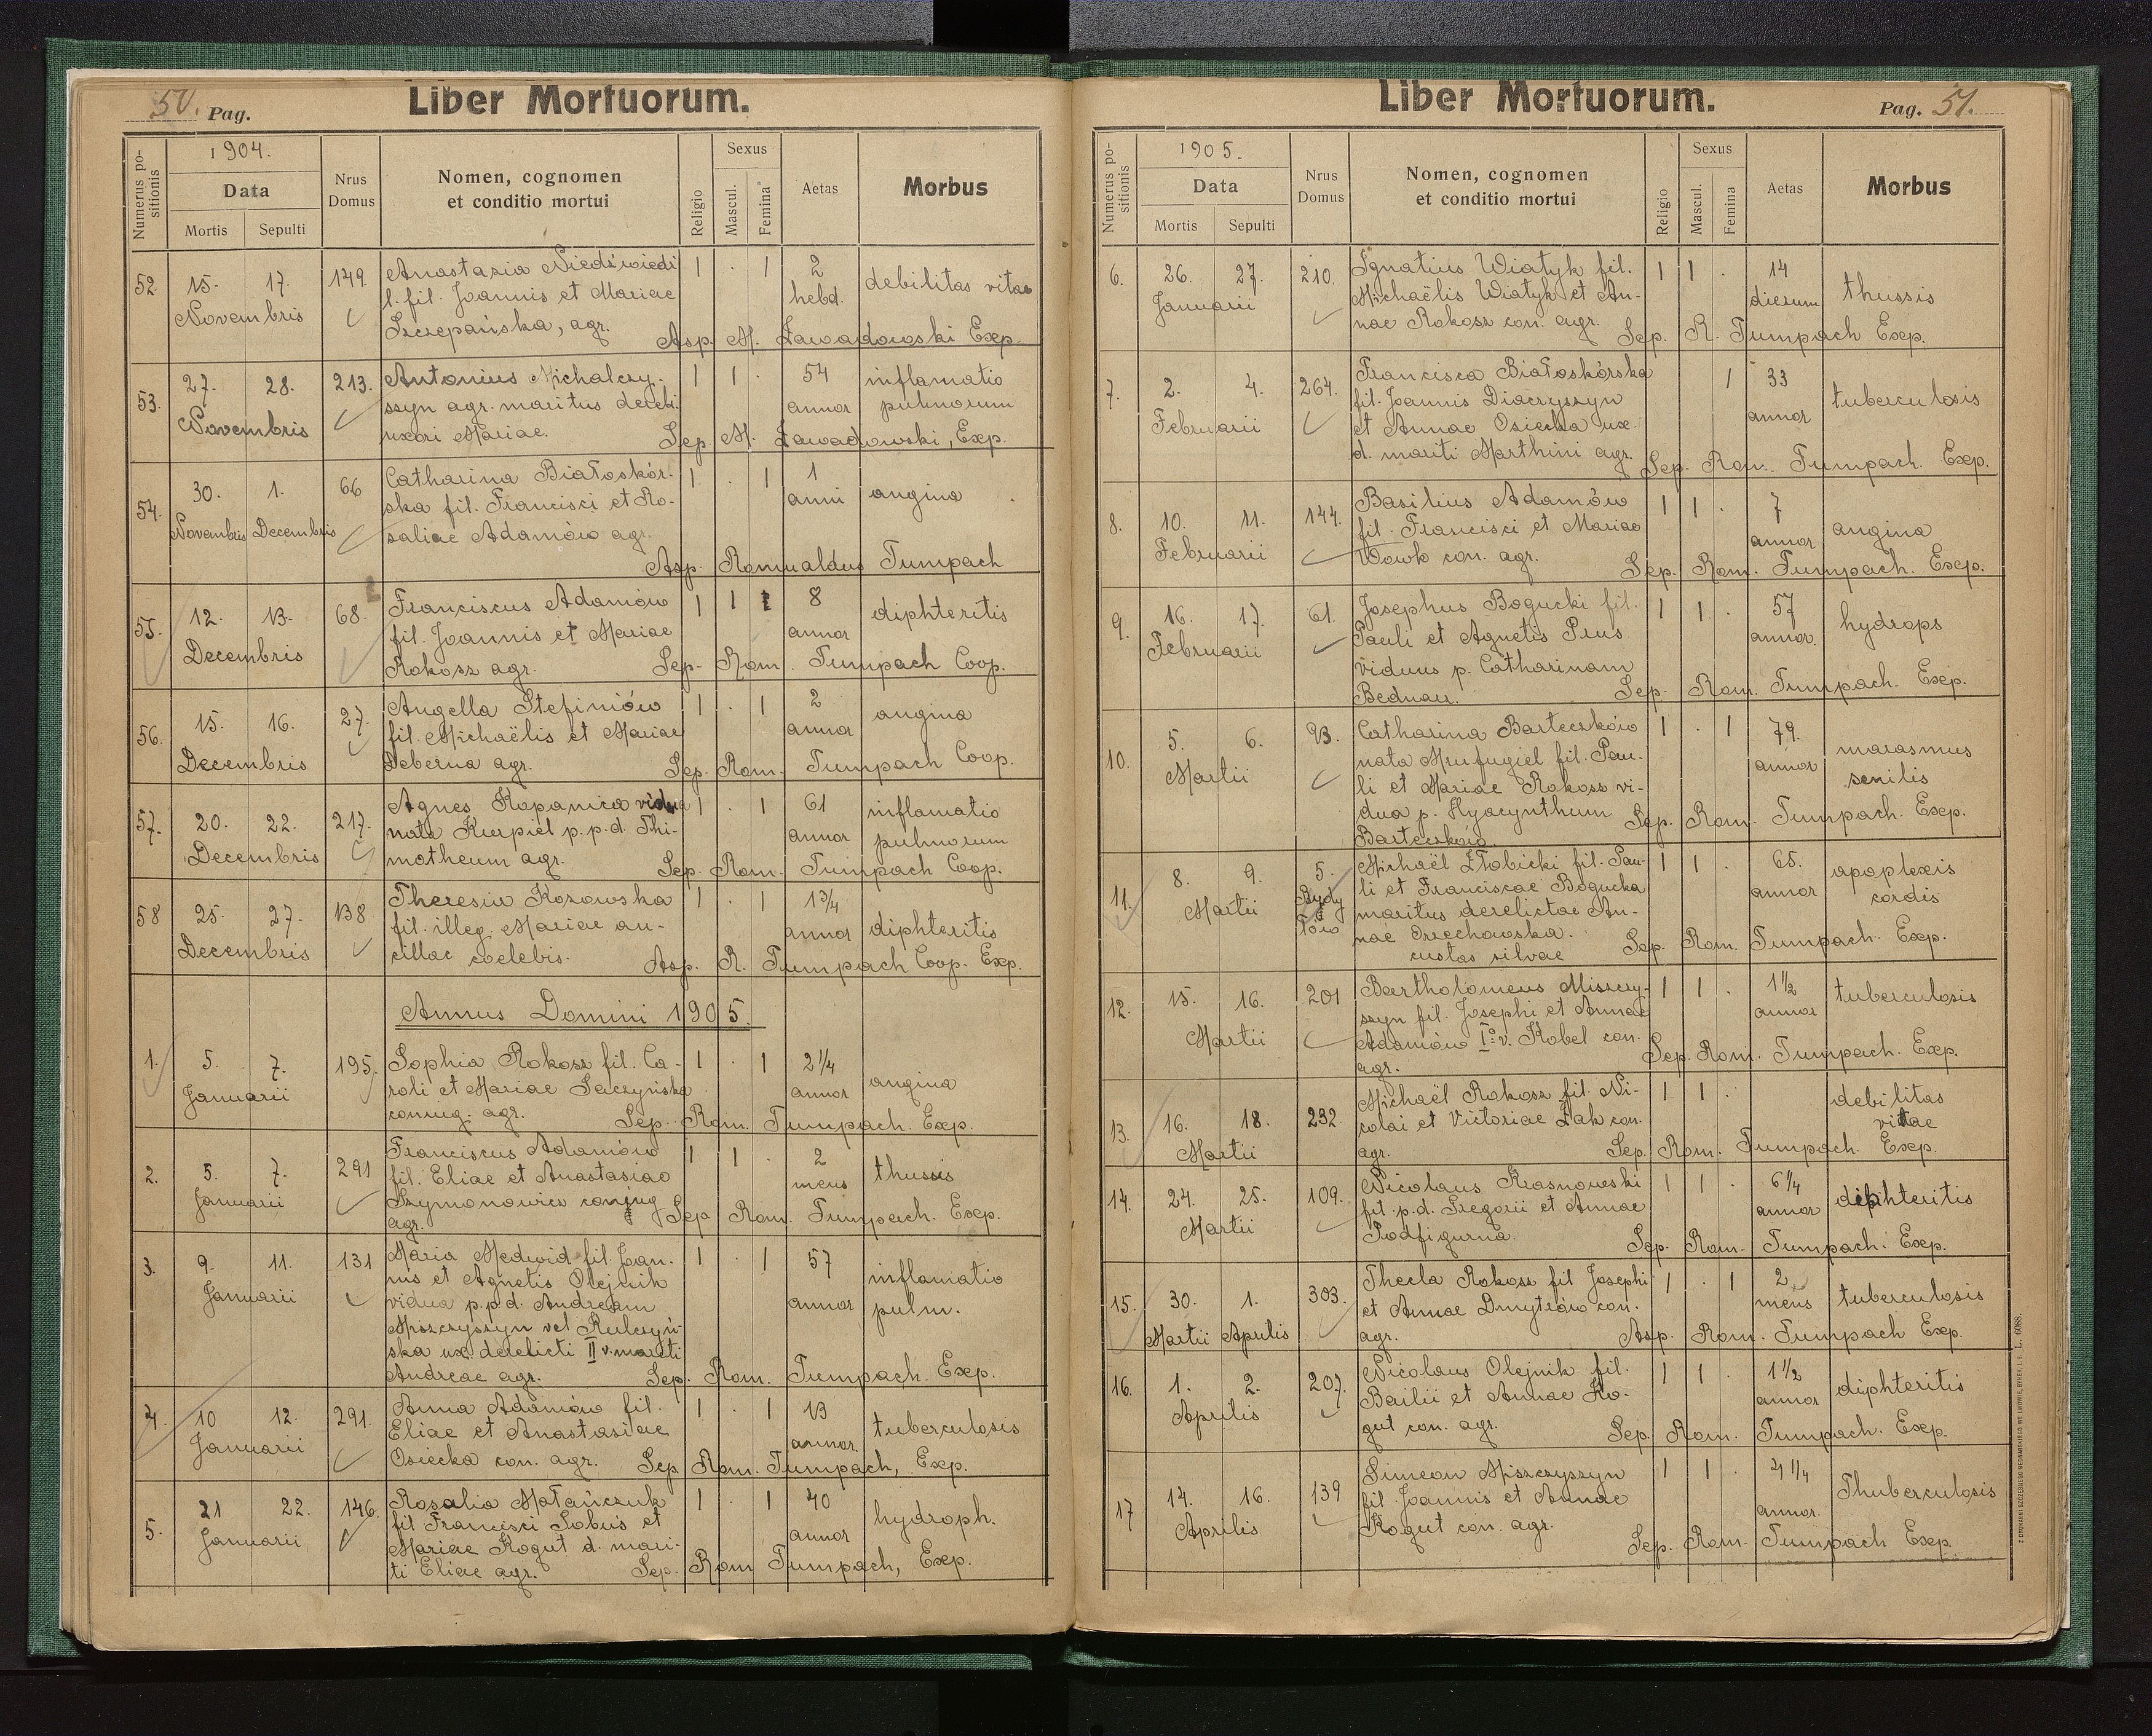 50. Pag.
Liber Mortuorum.
Numerus positionis
1904.
Data
Mortis Sepulti
Nrus Domus
Nomen, cognomen
et conditio mortui
Religio
Sexus
Mascul. Femina
Aetas
Morbus
52. 15. 17. 149. Anastasia Niedźwiedź 1 . 1 2 debilitas vitae
Novembris l. fil. Joannis et Mariae hebd.
Szczepańska, agr. Asp. M. Zawadowski Exp.
53. 27. 28. 213. Antonius Michalczy- 1 1 . 54 inflamatio
Novembris szyn agr. maritus derel. annor pulmorum
uxori Mariae. Sep. M. Zawadowski, Exp.
54. 30. 1. 66 Catharina Białoskór- 1 . 1 1 angina
Novembris Decembris ska fil. Francisci et Ro- anni
saliae Adamów agr.
Asp. Romualdus Tumpach
55. 12. 13. 68. Franciscus Adamów 1 1 8 diphteritis
Decembris fil. Joannis et Mariae annor
Rokosz agr. Sep. Rom. Tumpach Coop.
56. 15. 16. 27. Angella Stefiniów 1 . 1 2 angina
Decembris fil. Michaëlis et Mariae annor
Deberna agr. Sep. Rom. Tumpach Coop.
57. 20. 22. 217. Agnes Kopanica vidua 1 . 1 61 inflamatio
Decembris nata Kurpiel p. p. d. Thi- annor pulmorum
motheum agr. Sep. Rom. Tumpach Coop.
58 25. 27. 138 Theresia Kozowska 1 . 1 1 3/4 diphteritis
Decembris fil. illeg. Mariae an- annor
cillae coelebis. Asp. R. Tumpach Coop. Exp.
Annus Domini 1905.
1. 5. 7. 195. Sophia Rokosz fil. Ca- 1 . 1 2 1/4 angina
Januarii roli et Mariae Saczyńska annor
coniug. agr. Sep. Rom. Tumpach. Exp.
2. 5. 7. 291 Franciscus Adamów 1 1 . 2 thussis
Januarii fil. Eliae et Anastasiae mens
Szymonowicz conjug
agr. Sep Rom. Tumpach. Exp.
3. 9. 11. 131 Maria Medwid fil. Joan- 1 . 1 57 inflamatio
Januarii nis et Agnetis Olejnik annor pulm.
vidua p. p. d. Andream
Miszczyszyn vel Kulczyń-
ska ux. derelicti II v. mariti
Andreae agr. Sep. Rom. Tumpach. Exp.
4. 10 12. 291. Anna Adamów fil. 1 . 1 13 tuberculosis
Januarii Eliae et Anastasiae annor.
Osiecka con. agr. Sep Rom. Tumpach, Exp.
5. 21 22. 146. Rosalia Matańczuk 1 . 1 40 hydroph.
Januarii fil Francisci Sobus et annor
Mariae Kogut d. mari-
ti Eliae agr. Sep. Rom Tumpach, Exp.
Liber Mortuorum.
Pag. 51.
Numerus positionis
1905.
Data
Mortis Sepulti
Nrus Domus
Nomen, cognomen
et conditio mortui
Religio
Sexus
Mascul. Femina
Aetas
Morbus
6. 26. 27. 210. Ignatius Wiatyk fil. 1 1 . 14 thussis
Januarii Michaëlis Wiatyk et An- dierum
nae Rokosz con. agr. Sep. R. Tumpach Exp.
7. 2. 4. 264. Francisca Białoskórska 1 33 tuberculosis
Februarii fil. Joannis Diaczyszyn annor
et Annae Osiecka ux.
d. mariti Marthini agr. Sep. Rom. Tumpach. Exp.
8. 10. 11. 144. Basilius Adamów 1 1 . 7 angina
Februarii fil. Francisci et Mariae annor
Wowk con. agr. Sep. Rom. Tumpach. Exp.
9. 16. 17. 61. Josephus Bogucki fil. 1 1 . 57 hydrops
Februarii Pauli et Agnetis Prus annor.
viduus p. Catharinam
Bednarz. Sep. Rom. Tumpach. Exp.
10. 5. 6. 93. Catharina Barteczków 1 . 1 79. marasmus
Martii nata Mrufugiel fil. Pau- annor senilis
li et Mariae Rokosz vi-
dua p. Hyacynthum Sep. Rom. Tumpach. Exp.
Barteczków.
11. 8. 9. 5. Michaël Żłobicki fil. Pau- 1 1 . 65. apoplexis
Martii Rydy li et Franciscae Bogucka annor cordis
łów maritus derelictae An-
nae Orzechowska. Sep. Rom. Tumpach. Exp.
custos silvae
12. 15. 16. 201 Bartholomeus Miszczy- 1 1 . 1 1/2 tuberculosis
Martii szyn fil. Josephi et Annae annor
Adamów I-o v. Kobel con.
agr. Sep. Rom. Tumpach. Exp.
13. 16. 18. 232. Michaël Rokosz fil. Ni- 1 1 . debilitas
Martii colai et Victoriae Żak con. vitae
agr. Sep. Rom. Tumpach. Exp.
14. 24. 25. 109. Nicolaus Krasnowski 1 1 . 6 1/4 diphteritis
Martii fil. p. d. Gregorii et Annae annor
Podfigurna. Sep. Rom. Tumpach. Exp.
15. 30. 1. 303. Thecla Rokosz fil Josephi 1 . 1 2 tuberculosis
Martii Aprilis et Annae Dmytrów con. mens
agr. Asp. Rom. Tumpach Exp.
16. 1. 2. 207. Nicolaus Olejnik fil. 1 1 . 1 1/2 diphteritis
Aprilis Basilii et Annae Ko- annor
gut con. agr. Sep. Rom. Tumpach. Exp.
17 14. 16. 139 Simeon Miszczyszyn 1 1 . 4 1/4 Thuberculosis
Aprilis fil. Joannis et Annae annor.
Kogut con. agr.
Sep. Rom. Tumpach Exp.
L. 6088.